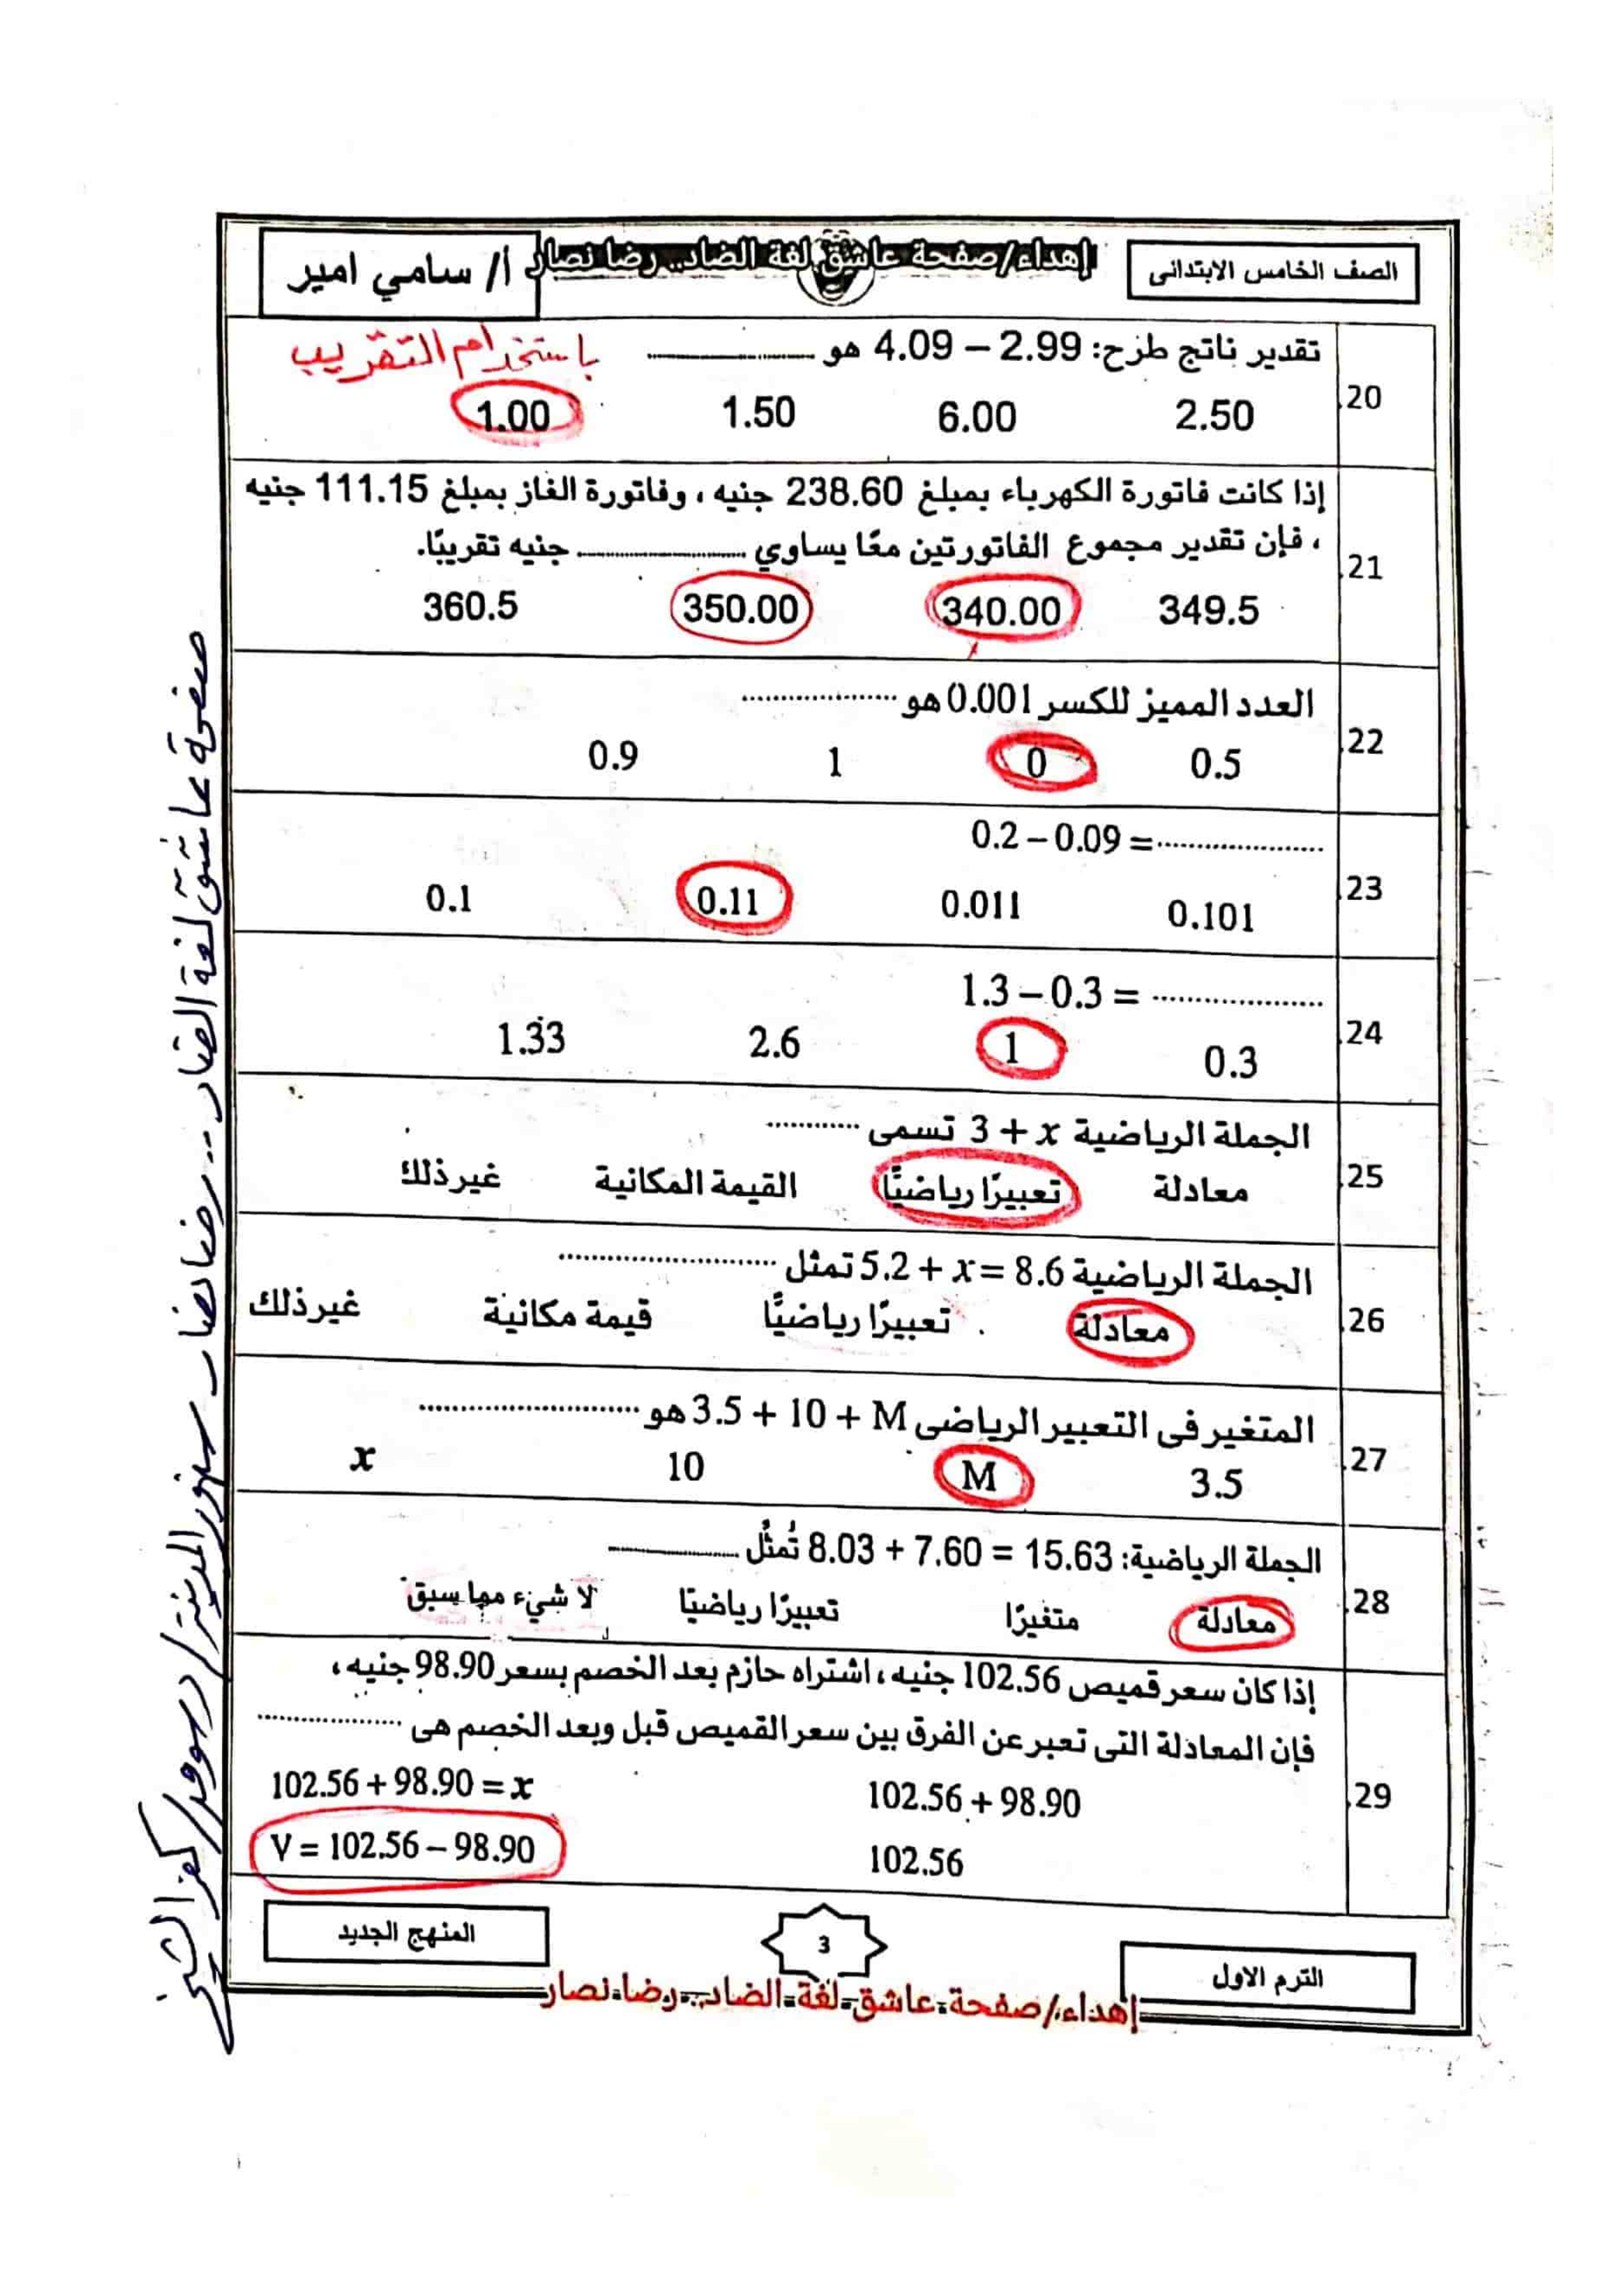 الصف الخامس الابتدائى
إهداء/صفحة عاشق لغة الضاد.. رضا نصار
أ/ سامي امير
20. تقدير ناتج طرح: 2.99 – 4.09 هو ............
باستخدام التقريب
2.50 6.00 1.50 1.00
إذا كانت فاتورة الكهرباء بمبلغ 238.60 جنيه ، وفاتورة الغاز بمبلغ 111.15 جنيه
21. ، فإن تقدير مجموع الفاتورتين معًا يساوي ............ جنيه تقريبًا.
349.5 340.00 350.00 360.5
22. العدد المميز للكسر 0.001 هو ............
0.5 0 1 0.9
23. 0.2 – 0.09 = ............
0.101 0.011 0.11 0.1
24. 1.3 – 0.3 = ............
0.3 1 2.6 1.33
25. الجملة الرياضية 3 + x تسمى ............
معادلة تعبيرًا رياضيًّا القيمة المكانية غير ذلك
26. الجملة الرياضية 5.2 + x = 8.6 تمثل ............
معادلة تعبيرًا رياضيًّا قيمة مكانية غير ذلك
27. المتغير فى التعبير الرياضى 3.5 + 10 + M هو ............
3.5 M 10 x
28. الجملة الرياضية: 8.03 + 7.60 = 15.63 تُمثُل ............
معادلة متغيرًا تعبيرًا رياضيًا لا شيء مما سبق
إذا كان سعر قميص 102.56 جنيه ، اشتراه حازم بعد الخصم بسعر 98.90 جنيه ،
فإن المعادلة التى تعبر عن الفرق بين سعر القميص قبل وبعد الخصم هى ............
29. 102.56 + 98.90 102.56 + 98.90 = x
102.56 V = 102.56 – 98.90
الترم الاول
3
المنهج الجديد
إهداء/صفحة عاشق لغة الضاد.. رضا نصار
صفحة عاشق لغة الضاد .. رضا نصار سنهور المدينة/دسوق/كفر الشيخ